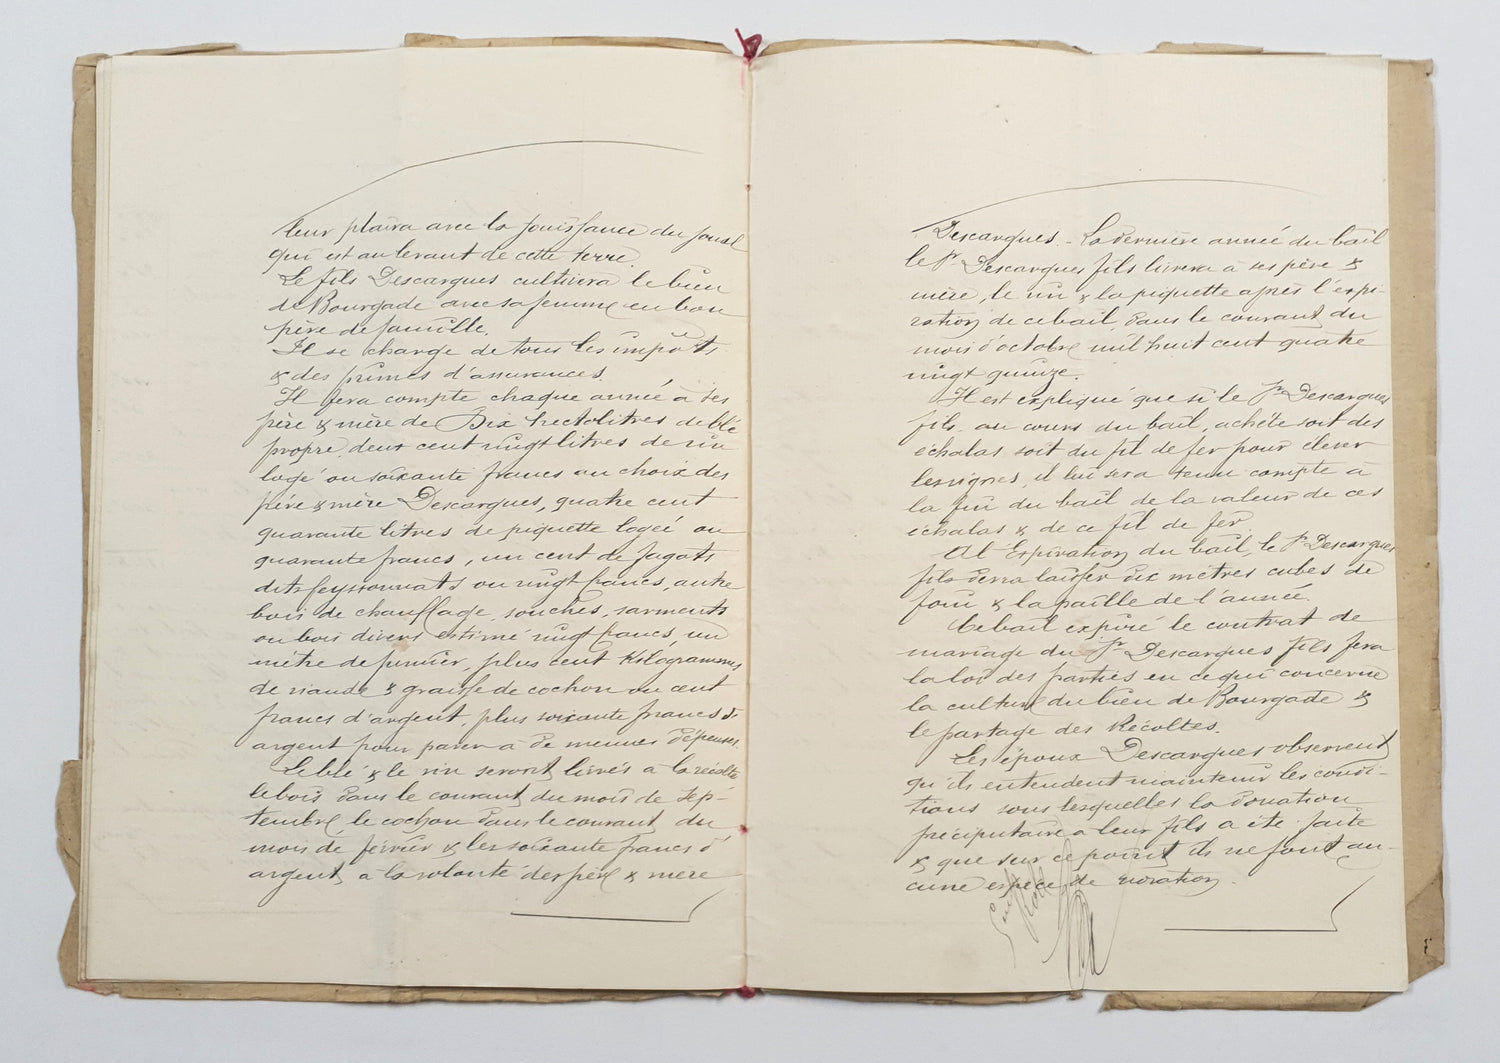 leur plaira avec la jouissance du fossé
qui est au levant de cette terre.
Le fils Descargues cultivera le bien
de Bourgade avec sa femme en bon
père de famille.
Il se charge de tous les impôts
& des primes d'assurances.
Il fera compte chaque année à ses
père & mère de Dix hectolitres de blé
propre, deux cent vingt litres de vin
logé ou soixante francs au choix des
père & mère Descargues, quatre cent
quarante litres de piquette logée ou
quarante francs, un cent de fagots
dits feyssonnats ou vingt francs, autre
bois de chauffage, souches, sarments
ou bois divers estimé vingt francs, un
mètre de fumier, plus cent Kilogrammes
de viande & graisse de cochon ou cent
francs d'argent, plus soixante francs d'
argent pour parer à de menues dépenses.
Le blé & le vin seront livrés à la récolte
le bois dans le courant du mois de sep-
tembre, le cochon dans le courant du
mois de février & les soixante francs d'
argent, à la volonté des père & mère
Descargues. - La dernière année du bail
le Sr Descargues fils livrera à ses père &
mère, le vin & la piquette après l'expi-
ration de ce bail, dans le courant du
mois d'octobre mil huit cent quatre
vingt quinze.
Il est expliqué que si le Sr Descargues
fils, au cours du bail, achète soit des
échalas soit du fil de fer pour élever
les vignes, il lui sera tenu compte à
la fin du bail de la valeur de ces
échalas & de ce fil de fer.
A l'Expiration du bail, le Sr Descargues
fils devra laisser dix mètres cubes de
foin & la paille de l'année.
Ce bail expiré le contrat de
mariage du Sr Descargues fils fera
la loi des parties en ce qui concerne
la culture du bien de Bourgade &
le partage des Récoltes.
Les époux Descargues observent
qu'ils entendent maintenir les condi-
tions sous lesquelles la donation
préciputaire à leur fils a été faite
& que sur ce point ils ne font au-
cune espèce de novation.